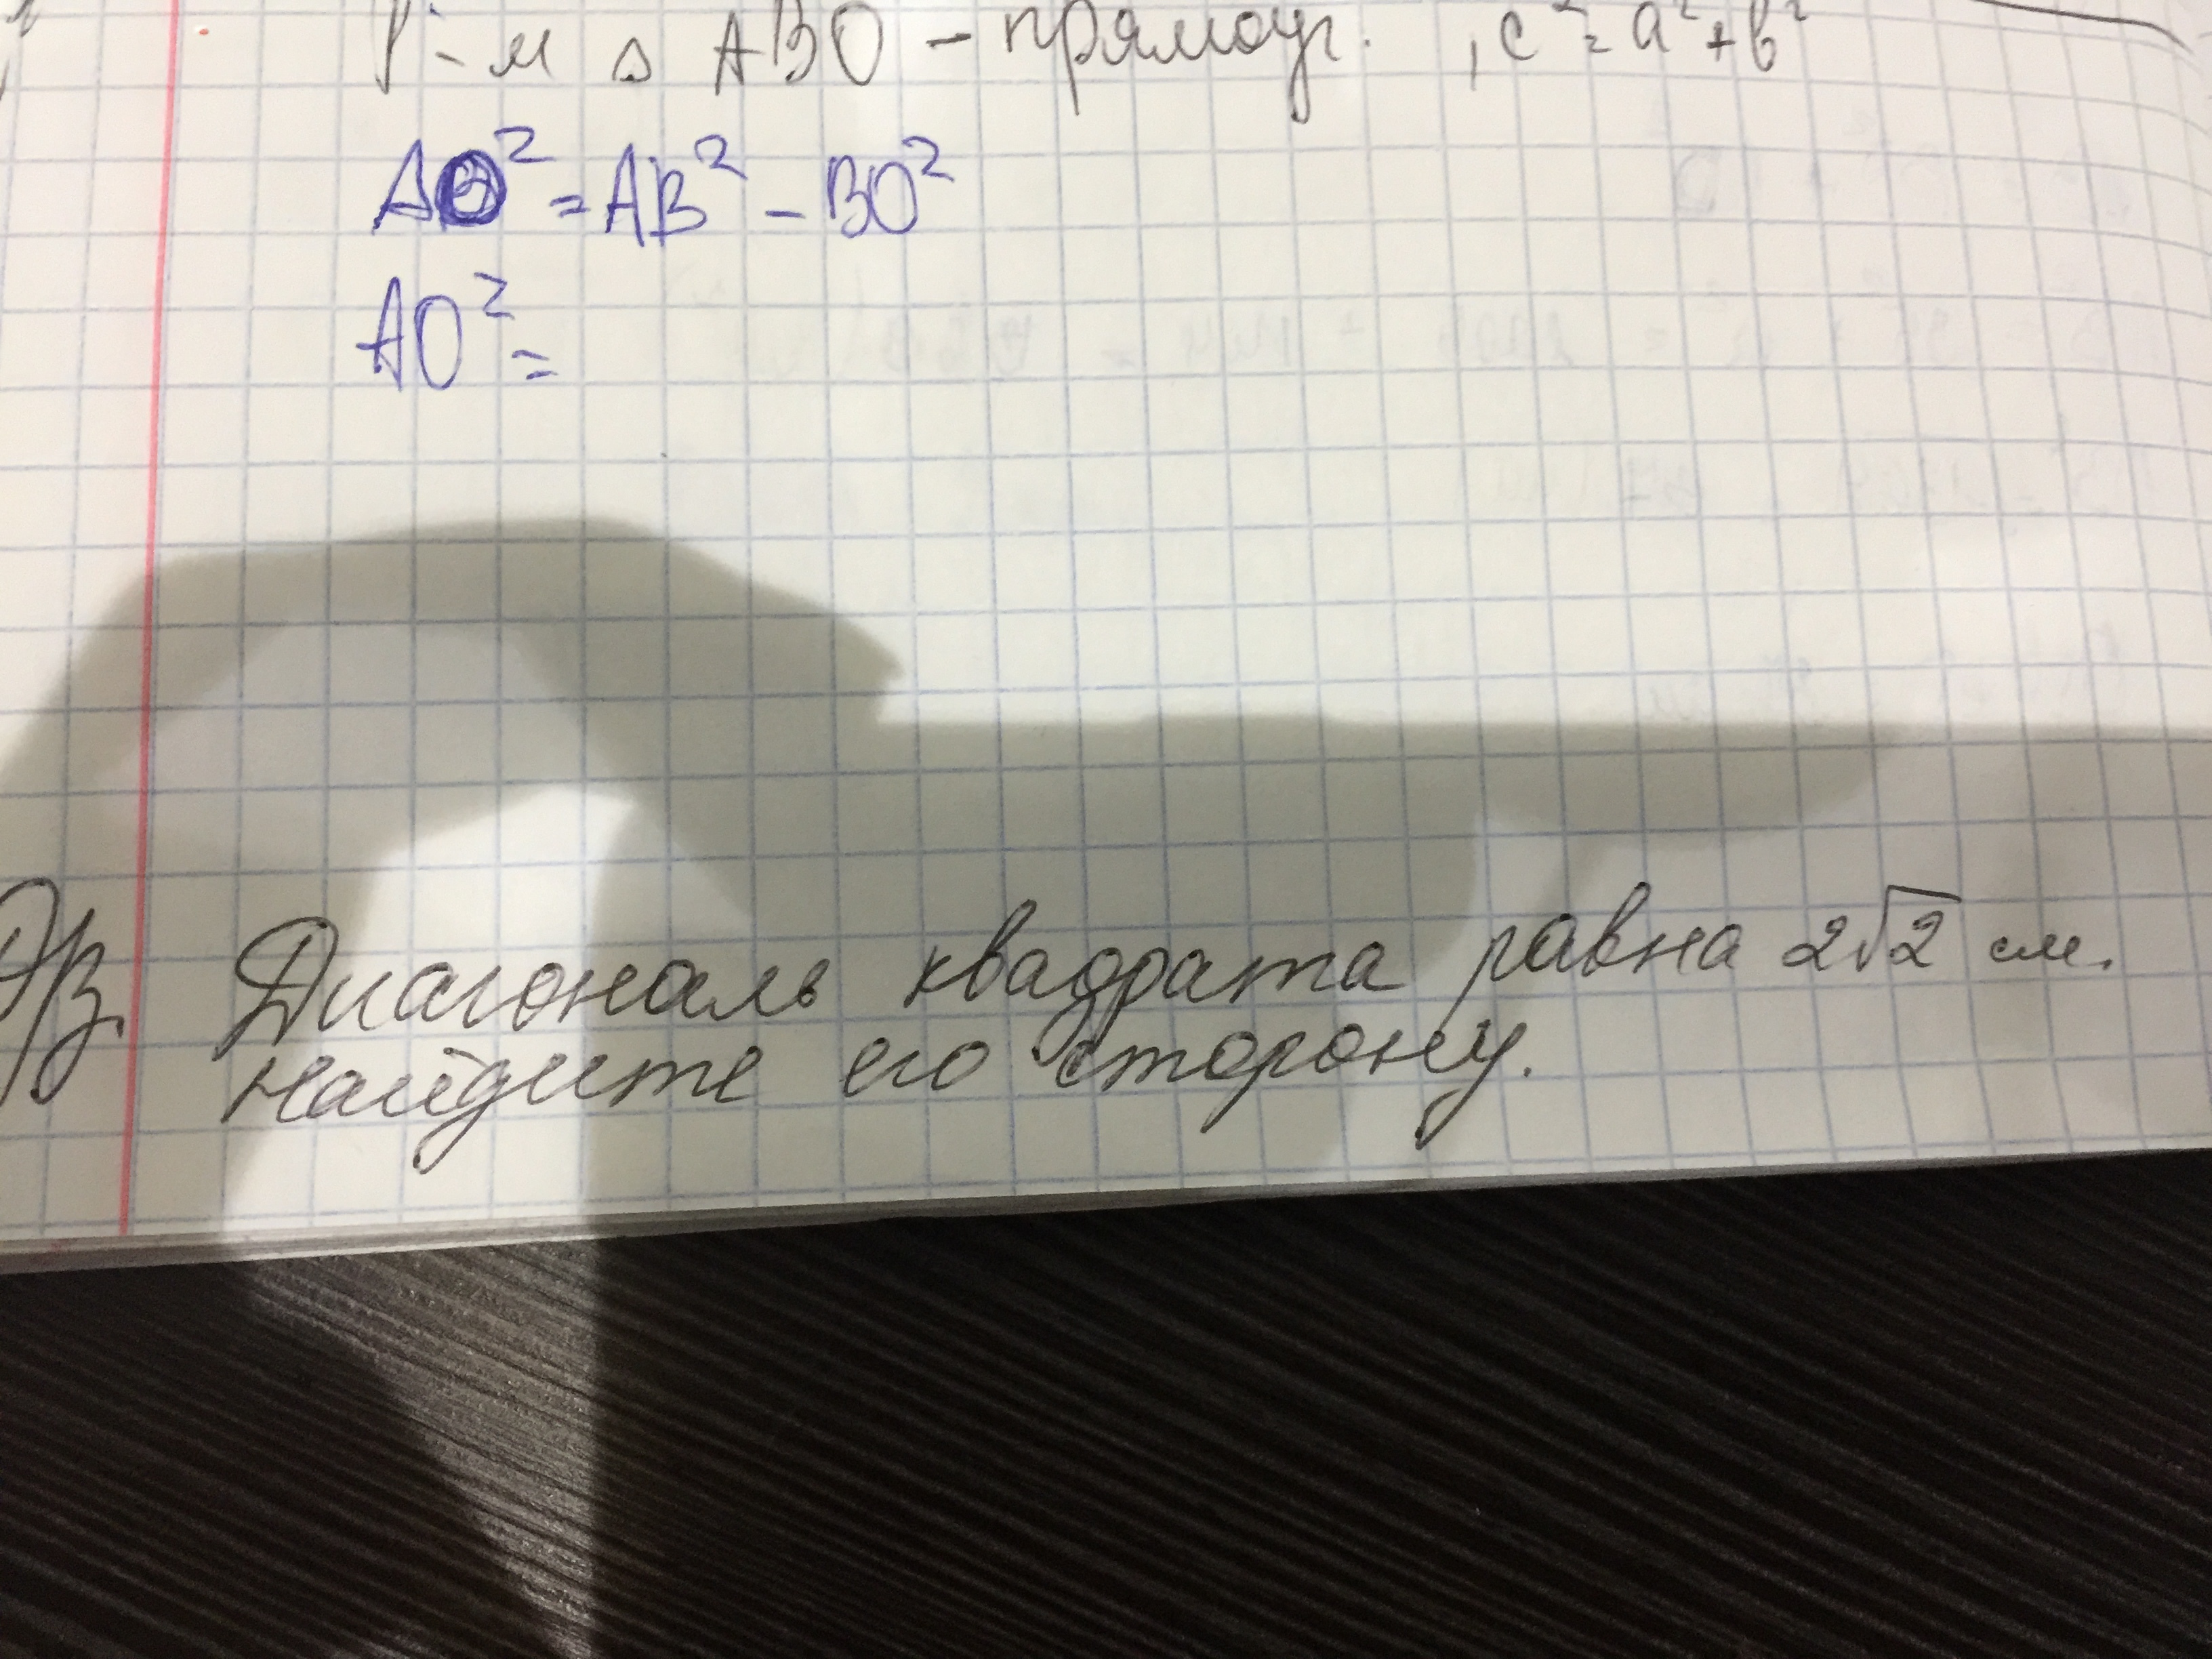 Р-м △ ABO – прямоуг. , c² = a² + b²
AO² = AB² – BO²
AO² =
Д/З. Диагональ квадрата равна 2√2 см.
Найдите его сторону.